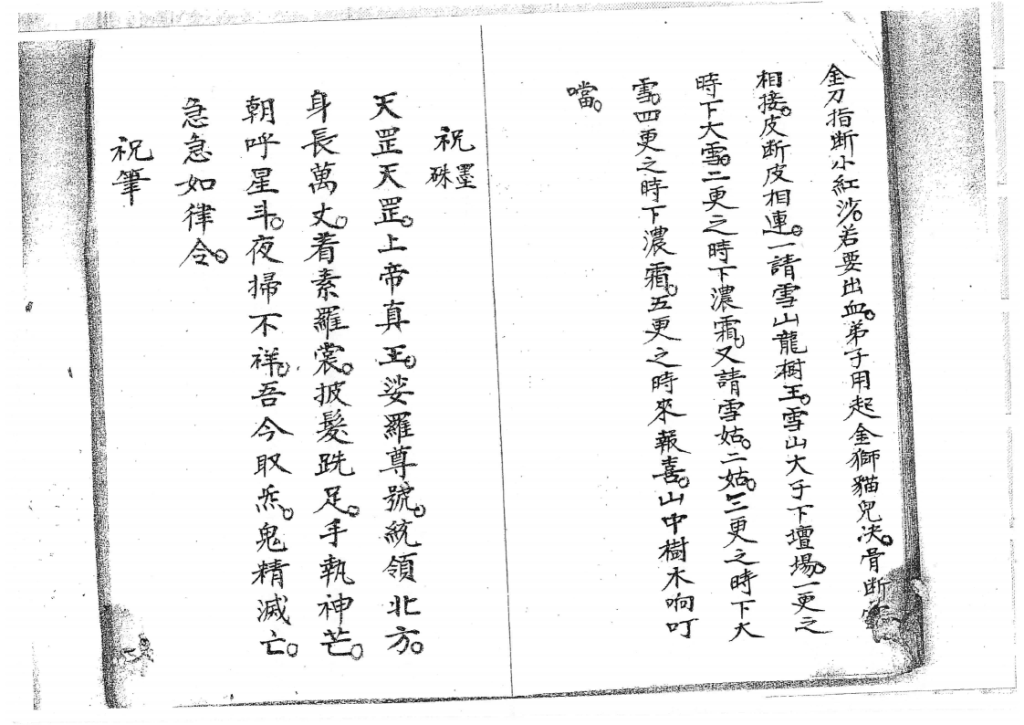 金刀指断小紅沙。若要出血。弟子用起金獅貓兒决。骨断
相接。皮断皮相連。一請雪山龍樹王。雪山大子下壇場。一更之
時下大雪。二更之時下濃霜。又請雪姑。二姑。三更之時下大
雪。四更之時下濃霜。五更之時來報喜。山中樹木响叮
噹。
祝墨硃
天罡天罡。上帝真王。娑羅尊號。統領北方。
身長萬丈。着素羅裳。披髮跣足。手執神芒。
朝呼星斗。夜掃不祥。吾今取炁。鬼精滅亡。
急急如律令。
祝筆